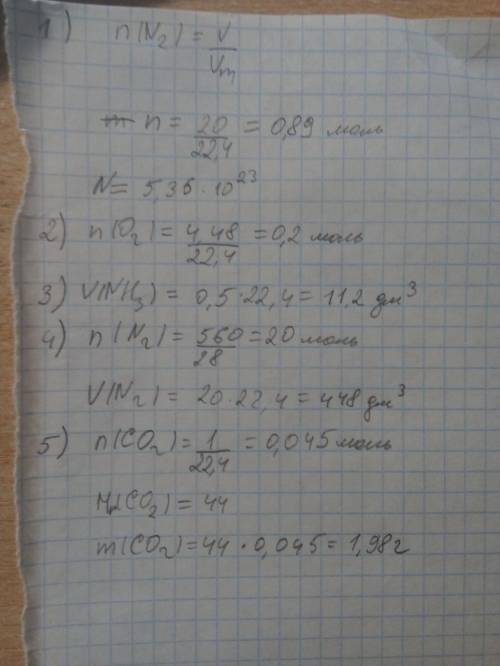 1) n(N₂) = V/Vm
n = 20/22,4 = 0,89 моль
N = 5,36·10²³
2) n(O₂) = 4,48/22,4 = 0,2 моль
3) V(NH₃) = 0,5·22,4 = 11,2 дм³
4) n(N₂) = 560/28 = 20 моль
V(N₂) = 20·22,4 = 448 дм³
5) n(CO₂) = 1/22,4 = 0,045 моль
Mr(CO₂) = 44
m(CO₂) = 44·0,045 = 1,98 г